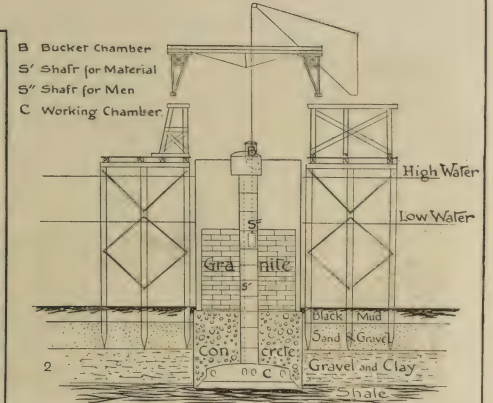 B Bucket Chamber
S' Shaft for Material
S" Shaft for Men
C Working Chamber.
B
High Water
Low Water
S"
Granite
S'
Black Mud
Sand & Gravel
Concrete
Gravel and Clay
C
Shale
2